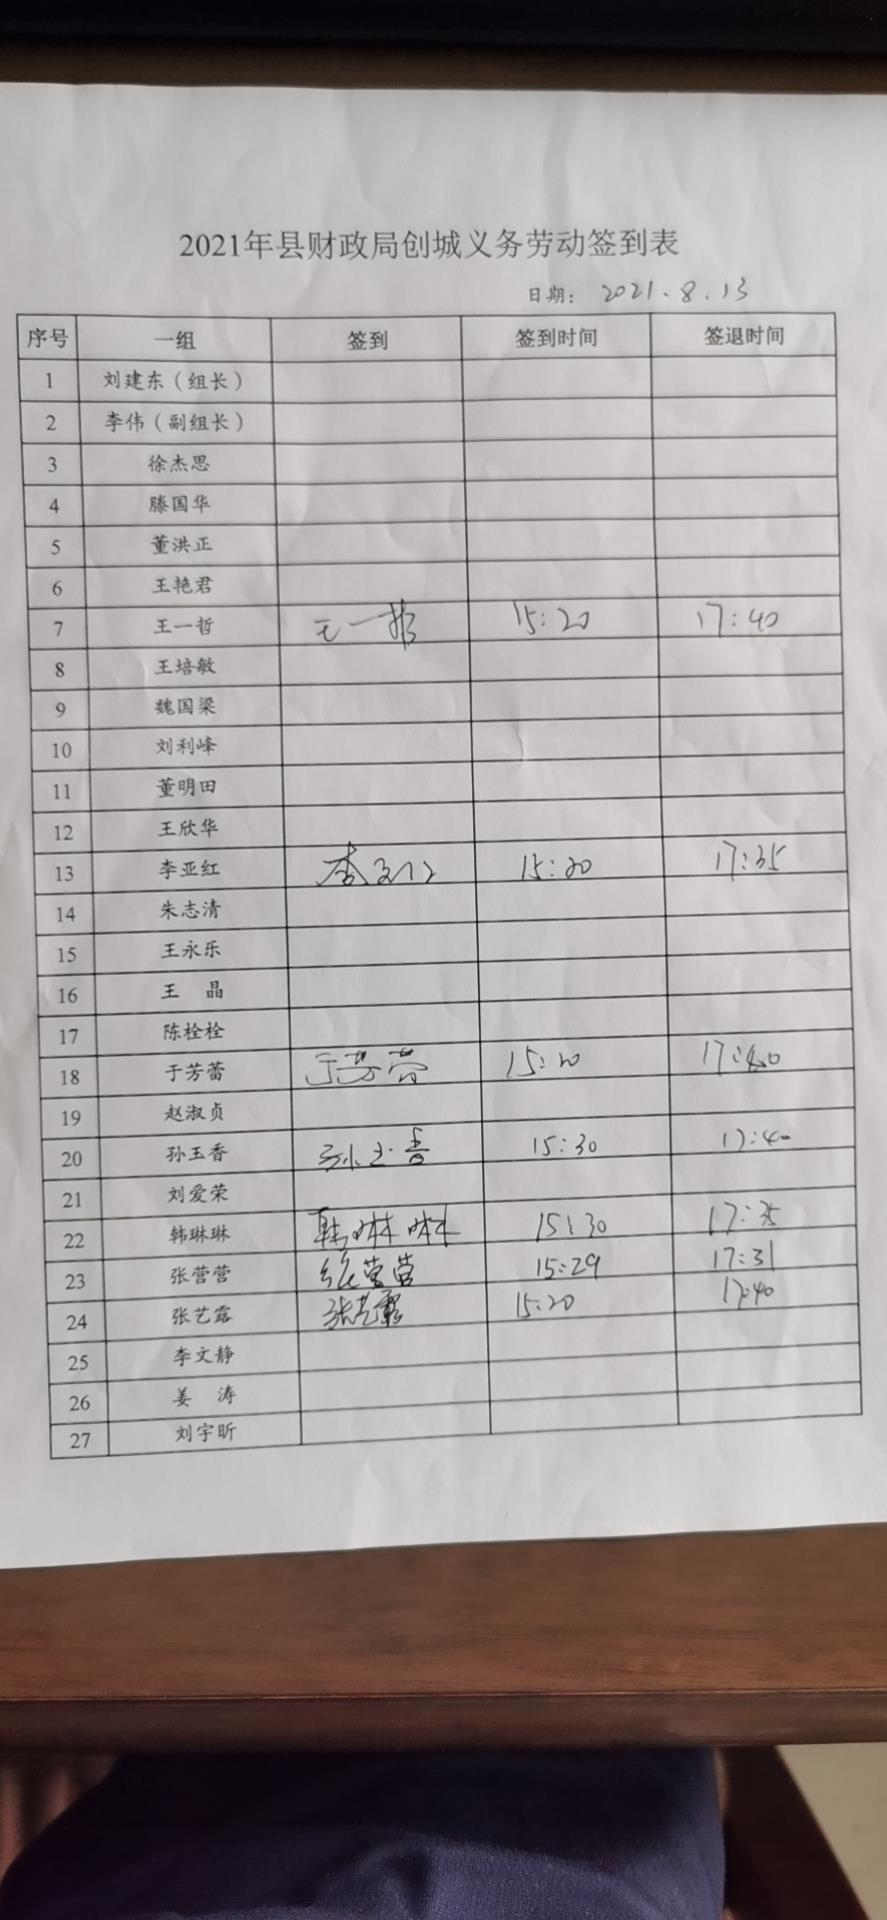 2021年县财政局创城义务劳动签到表
日期: 2021.8.13
序号 一组 签到 签到时间 签退时间
1 刘建东（组长）
2 李伟（副组长）
3 徐杰思
4 滕国华
5 董洪正
6 王艳君
7 王一哲 王一哲 15:20 17:40
8 王培敏
9 魏国梁
10 刘利峰
11 董明田
12 王欣华
13 李亚红 李亚红 15:20 17:35
14 朱志清
15 王永乐
16 王 晶
17 陈栓栓
18 于芳蕾 于芳蕾 15:20 17:40
19 赵淑贞
20 孙玉香 孙玉香 15:30 17:40
21 刘爱荣
22 韩琳琳 韩琳琳 15:30 17:35
23 张营营 张营营 15:29 17:31
24 张艺露 张艺露 15:20 17:40
25 李文静
26 姜 涛
27 刘宇昕